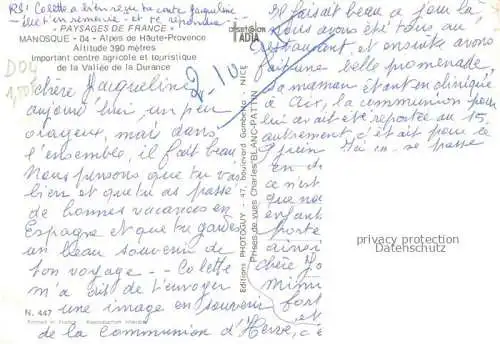 P.S : Colette a bien reçu ta carte Jacqueline
elle t'en remercie - et te répondra
"PAYSAGES DE FRANCE"
MANOSQUE - 04 - Alpes de Haute-Provence
Altitude 390 mètres
Important centre agricole et touristique
de la Vallée de la Durance
ADIA
D04
Chère Jacqueline
aujourd'hui un peu
orageux, mais dans
l'ensemble, il fait beau
Nous pensons que tu vas
bien et que tu as passé
de bonnes vacances en
Espagne et que tu gardes
un beau souvenir de
ton voyage - - Colette
m'a dit de t'envoyer
une image en souvenir
N. 447
Printed in France Reproduction interdite
de la communion d'Hervé,
Editions PHOTOGUY - 47, boulevard Gambetta - NICE
Prises de vues Charles BLANC-PATTIN
Il faisait beau ce jour là
nous avons été tous au
restaurant, et ensuite avons
fait une belle promenade
sa maman étant en clinique
à Aix, la communion pour
lui avait été reportée au 15,
autrement, c'était pour le
9 juin
se passe
en
ce n'est
que
enfant
porte
ainsi
chère
Mimi
fort
et
privacy protection
Datenschutz